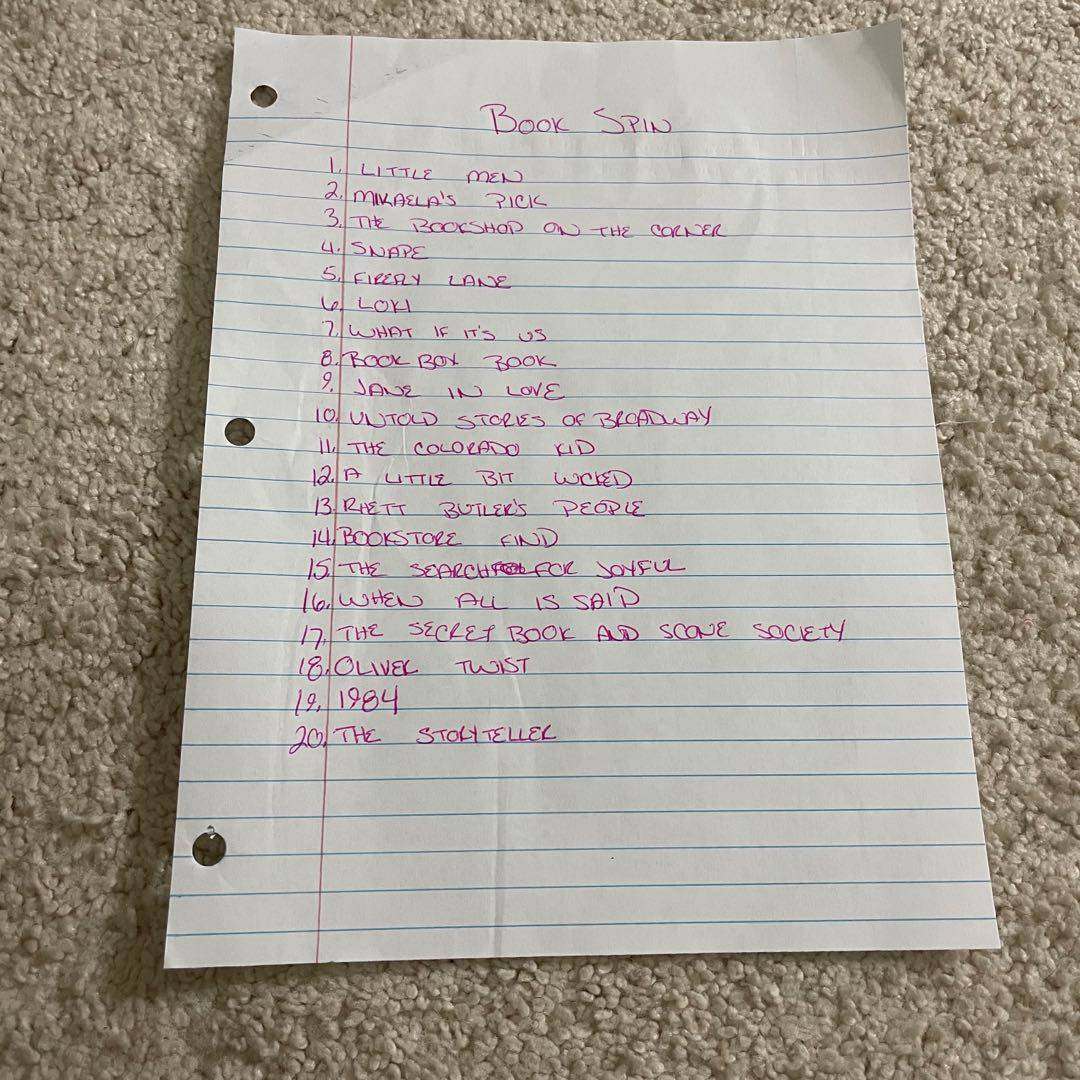 BOOK SPIN
1. LITTLE MEN
2. MIKAELA'S PICK
3. THE BOOKSHOP ON THE CORNER
4. SNAPE
5. FIREFLY LANE
6. LOKI
7. WHAT IF IT'S US
8. BOOK BOX BOOK
9. JANE IN LOVE
10. UNTOLD STORIES OF BROADWAY
11. THE COLORADO KID
12. A LITTLE BIT WICKED
13. RHETT BUTLER'S PEOPLE
14. BOOKSTORE FIND
15. THE SEARCH FOR JOYFUL
16. WHEN ALL IS SAID
17. THE SECRET BOOK AND SCONE SOCIETY
18. OLIVER TWIST
19. 1984
20. THE STORYTELLER